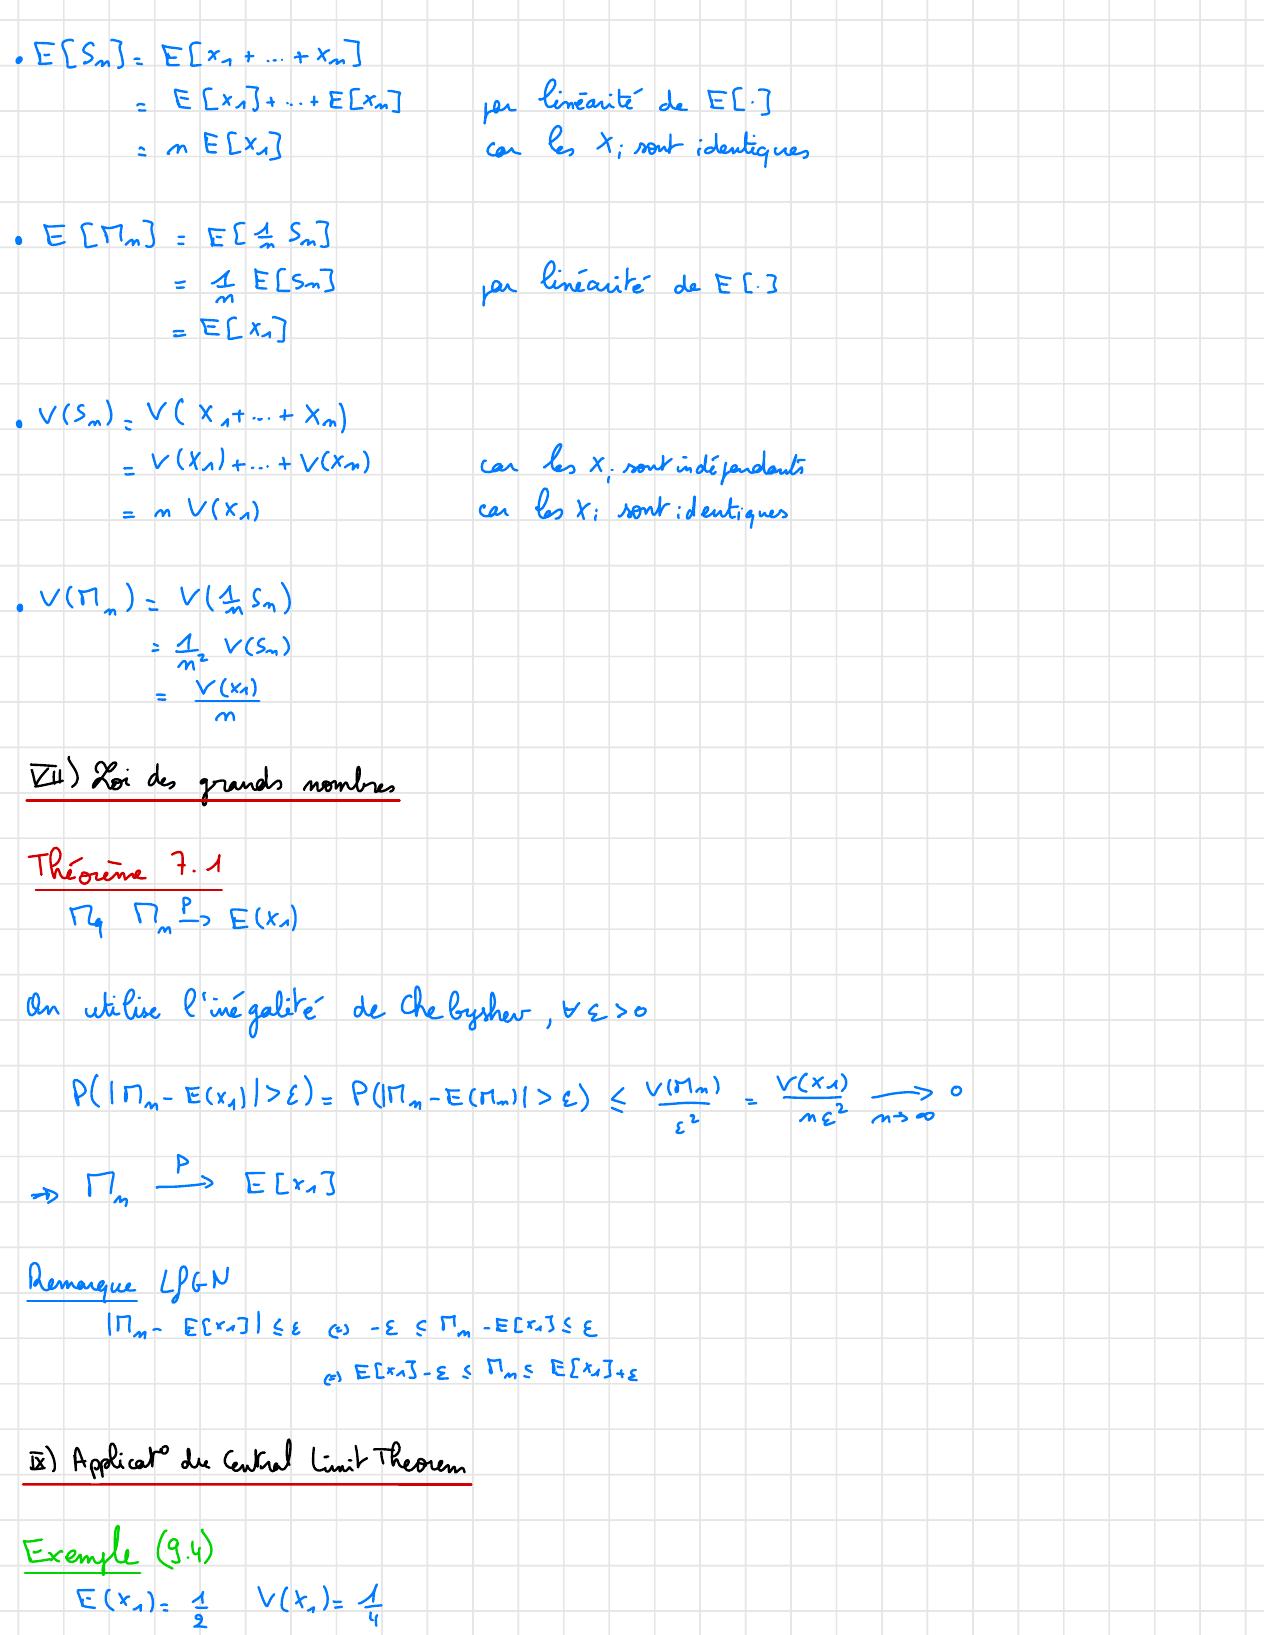 • E[Sn] = E[X1 + ... + Xn]
= E[X1] + ... + E[Xn] par linéarité de E[.]
= n E[X1] car les Xi sont identiques
• E[Mn] = E[1/n Sn]
= 1/n E[Sn] par linéarité de E[.]
= E[X1]
• V(Sn) = V(X1 + ... + Xn)
= V(X1) + ... + V(Xn) car les Xi sont indépendants
= n V(X1) car les Xi sont identiques
• V(Mn) = V(1/n Sn)
= 1/n² V(Sn)
= V(X1)/n
VII) Loi des grands nombres
Théorème 7.1
Mq Mn →P E(X1)
On utilise l'inégalité de Chebyshev, ∀ ε > 0
P(|Mn - E(X1)| > ε) = P(|Mn - E(Mn)| > ε) ≤ V(Mn)/ε² = V(X1)/nε² → 0 n→∞
⇒ Mn →P E[X1]
Remarque LfGN
|Mn - E[X1]| ≤ ε (=) -ε ≤ Mn - E[X1] ≤ ε
(=) E[X1] - ε ≤ Mn ≤ E[X1] + ε
IX) Applicat° du Central Limit Theorem
Exemple (9.4)
E(X1) = 1/2 V(X1) = 1/4